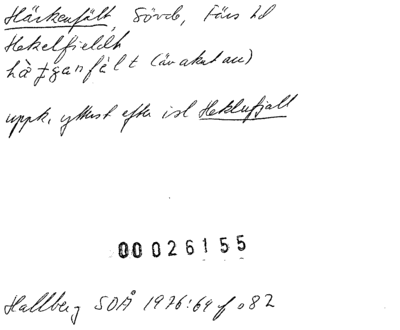 Häckenfält, Sövde, Färs hd
Hekelfieldh
hà‡ganfält (äv akut acc)
uppk. ytterst efter isl Heklufjall
00026155
Hallberg SOÅ 1976:69 f o 82